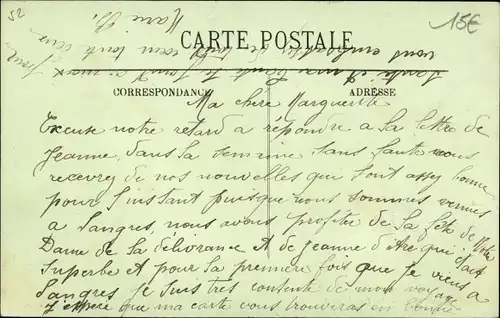 52
15€
CARTE POSTALE
CORRESPONDANCE
ADRESSE
Ma chère Marguerite
Excuse notre retard a répondre a la lettre de
Jeanne, dans la semaine sans faute vous
recevrez de nos nouvelles qui sont assez bonne
pour l'instant puisque nous sommes venues
a Langres, nous avons profiter de la fête de Notre
Dame de la délivrance et de Jeanne d'Arc qui était
superbe et pour la première fois que je viens a
Langres je suis très contente de mon voyage
J'espère que ma carte vous trouveras en bonne
santé et ma tante
vous embrasse de tout cœur tout deux
Marie B.